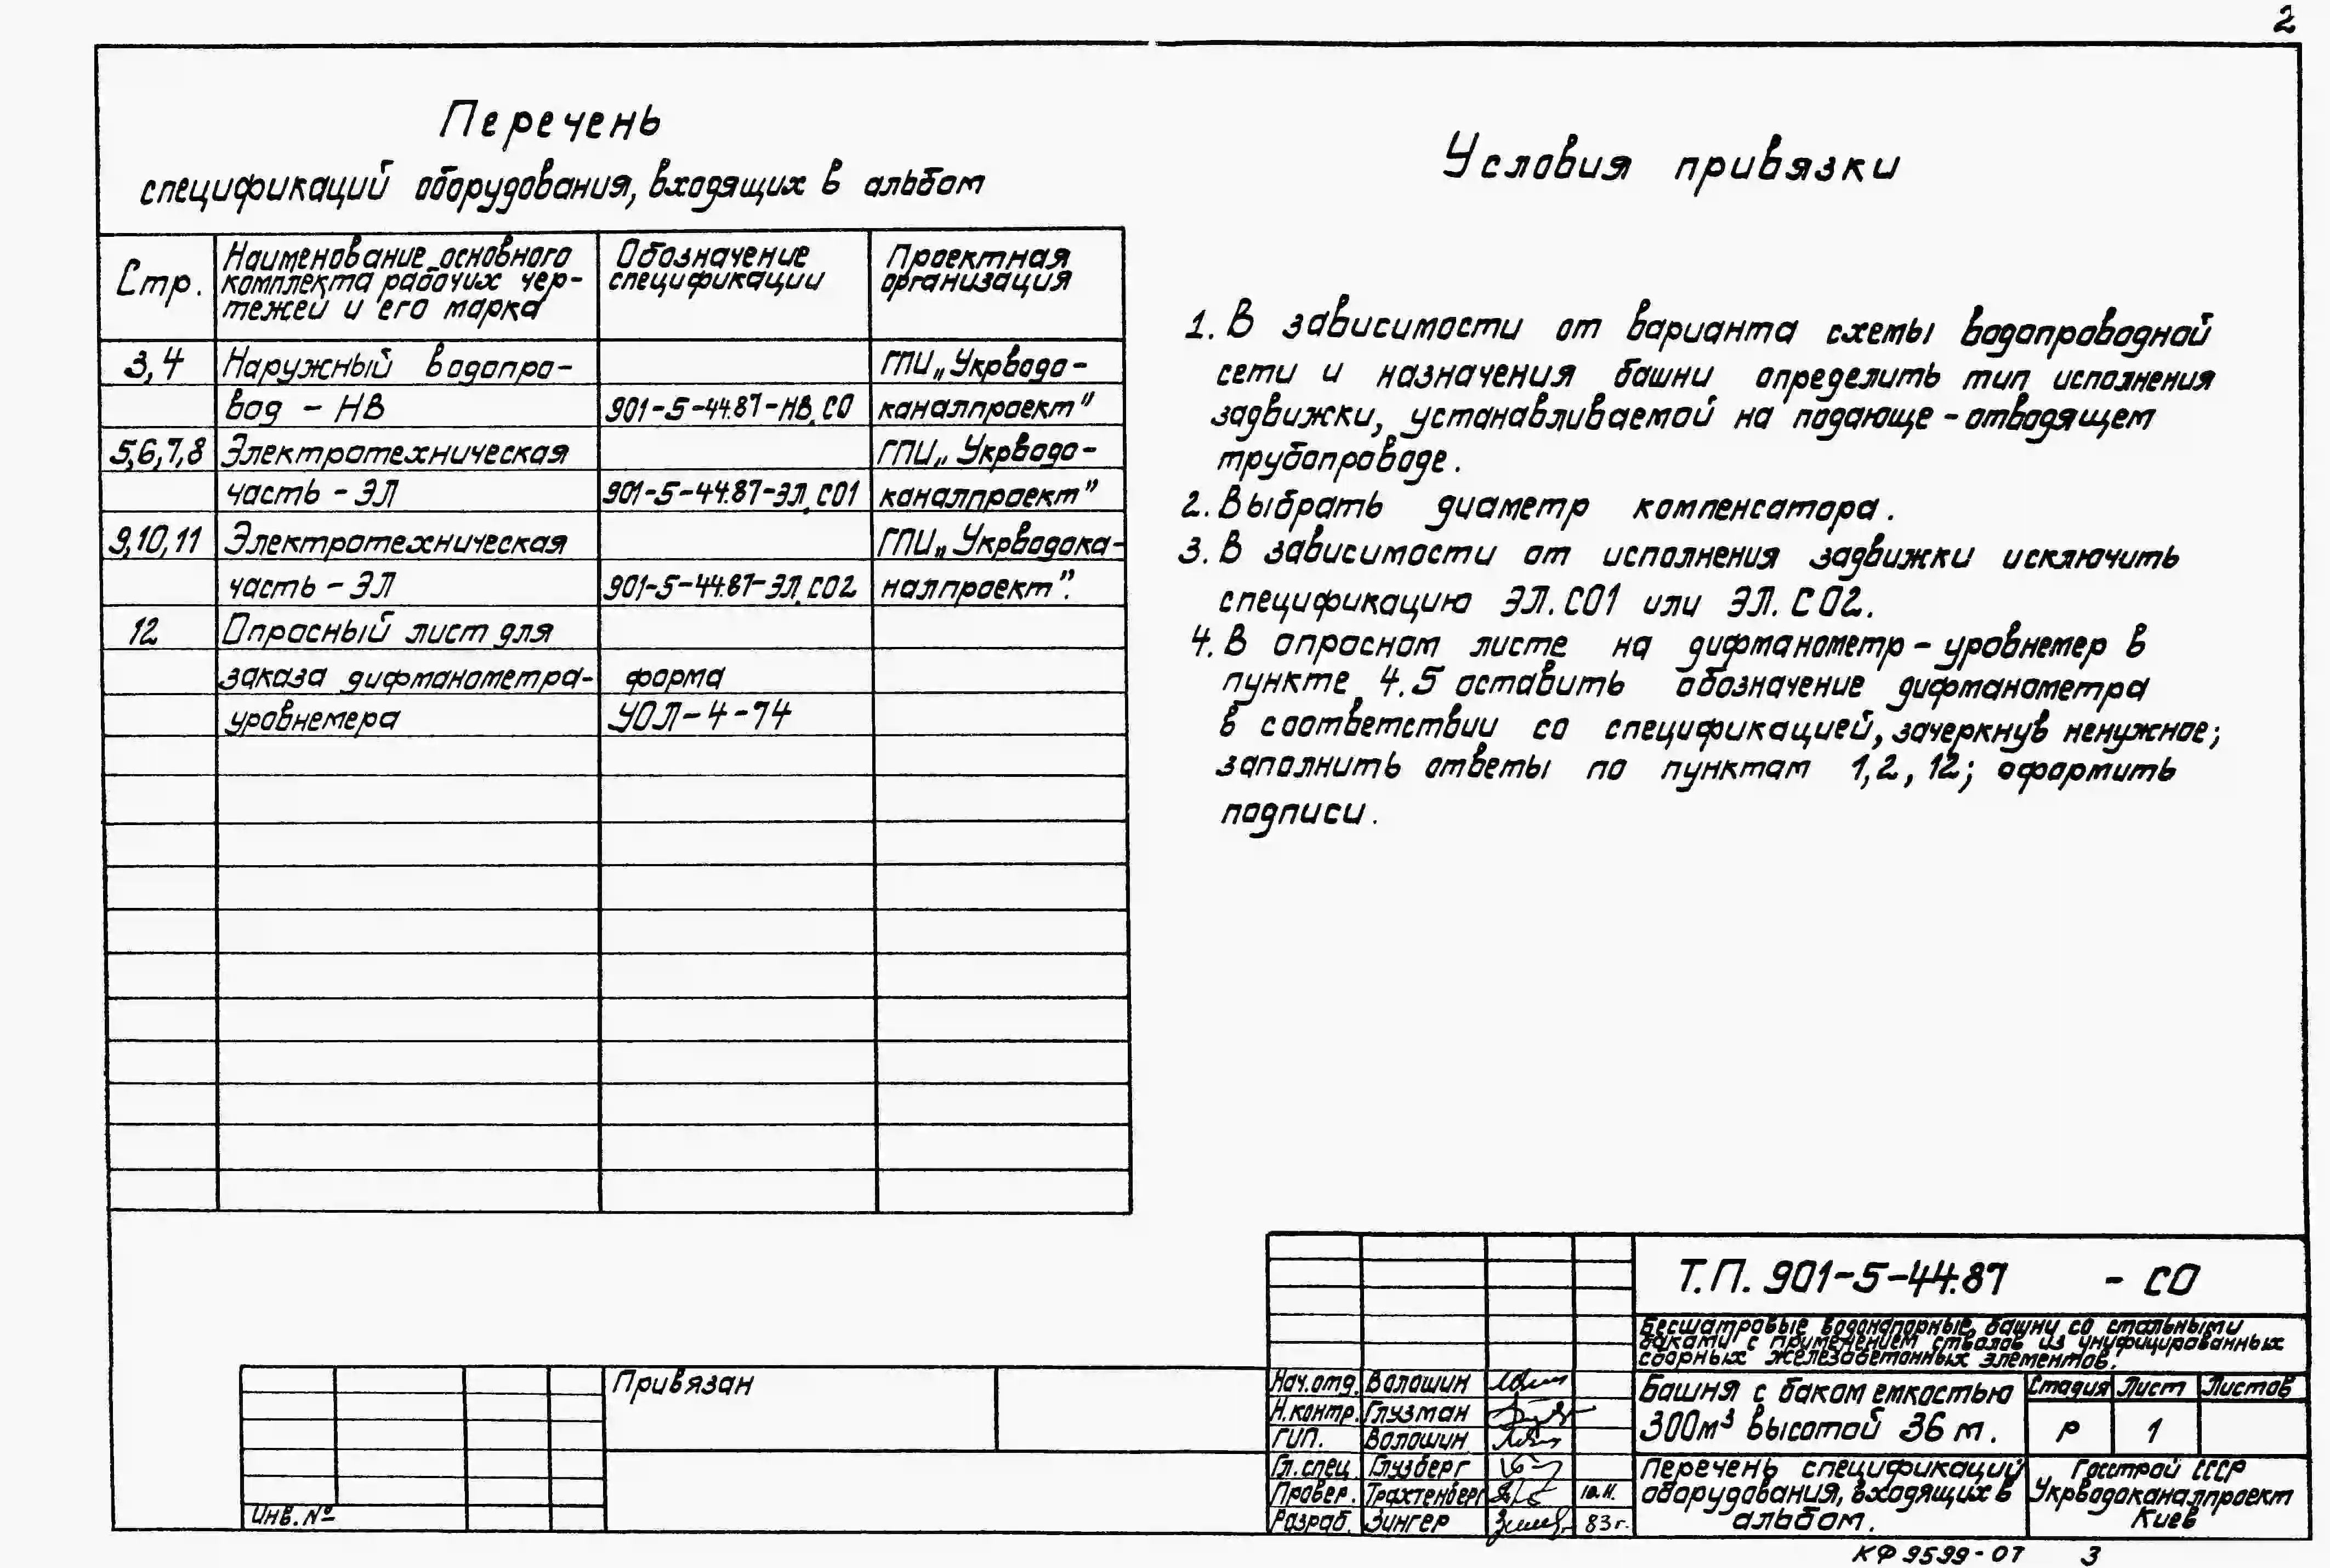 2
Перечень
спецификаций оборудования, входящих в альбом
Стр.
Наименование основного
комплекта рабочих чер-
тежей и его марка
Обозначение
спецификации
Проектная
организация
3,4 Наружный водопро- ГПИ „Укрводо-
вод - НВ 901-5-44.87-НВ.СО каналпроект"
5,6,7,8 Электротехническая ГПИ „Укрводо-
часть - ЭЛ 901-5-44.87-ЭЛ.СО1 каналпроект"
9,10,11 Электротехническая ГПИ „Укрводока-
часть - ЭЛ 901-5-44.87-ЭЛ.СО2 налпроект".
12 Опросный лист для
заказа дифманометра- форма
уровнемера УОЛ-4-74
Условия привязки
1. В зависимости от варианта схемы водопроводной
сети и назначения башни определить тип исполнения
задвижки, устанавливаемой на подающе-отводящем
трубопроводе.
2. Выбрать диаметр компенсатора.
3. В зависимости от исполнения задвижки исключить
спецификацию ЭЛ.СО1 или ЭЛ.СО2.
4. В опросном листе на дифманометр-уровнемер в
пункте 4.5 оставить обозначение дифманометра
в соответствии со спецификацией, зачеркнув ненужное;
заполнить ответы по пунктам 1,2,12; оформить
подписи.
Т.П. 901-5-44.87 - СО
Бесшатровые водонапорные башни со стальными
баками с применением стволов из унифицированных
сборных железобетонных элементов.
Башня с баком емкостью
300м³ высотой 36 м.
Стадия Лист Листов
Р 1
Перечень спецификаций
оборудования, входящих в
альбом.
Госстрой СССР
Укрводоканалпроект
Киев
Нач.отд. Волошин
Н.контр. Глузман
ГИП. Волошин
Гл.спец. Глузберг
Провер. Трахтенберг 10.11.
Разраб. Зингер 83г.
Привязан
Инв.№
КФ 9599-07 3